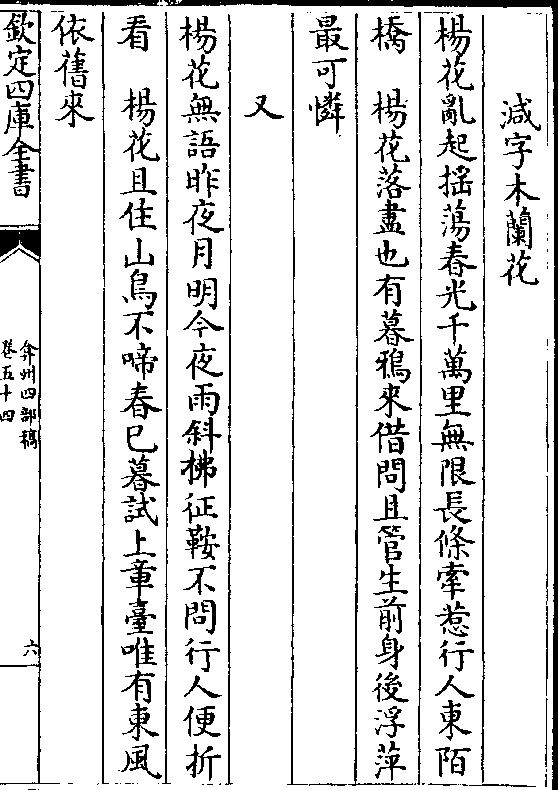 減字木蘭花
楊花亂起揺蕩春光千萬里無限長條牽惹行人東陌
橋　楊花落盡也有暮鴉來借問且管生前身後浮萍
最可憐
又
楊花無語昨夜月明今夜雨斜拂征鞍不問行人便折
看　楊花且住山鳥不啼春已暮試上章臺唯有東風
依舊來
欽定四庫全書
弇州四部稿
卷五十四
六